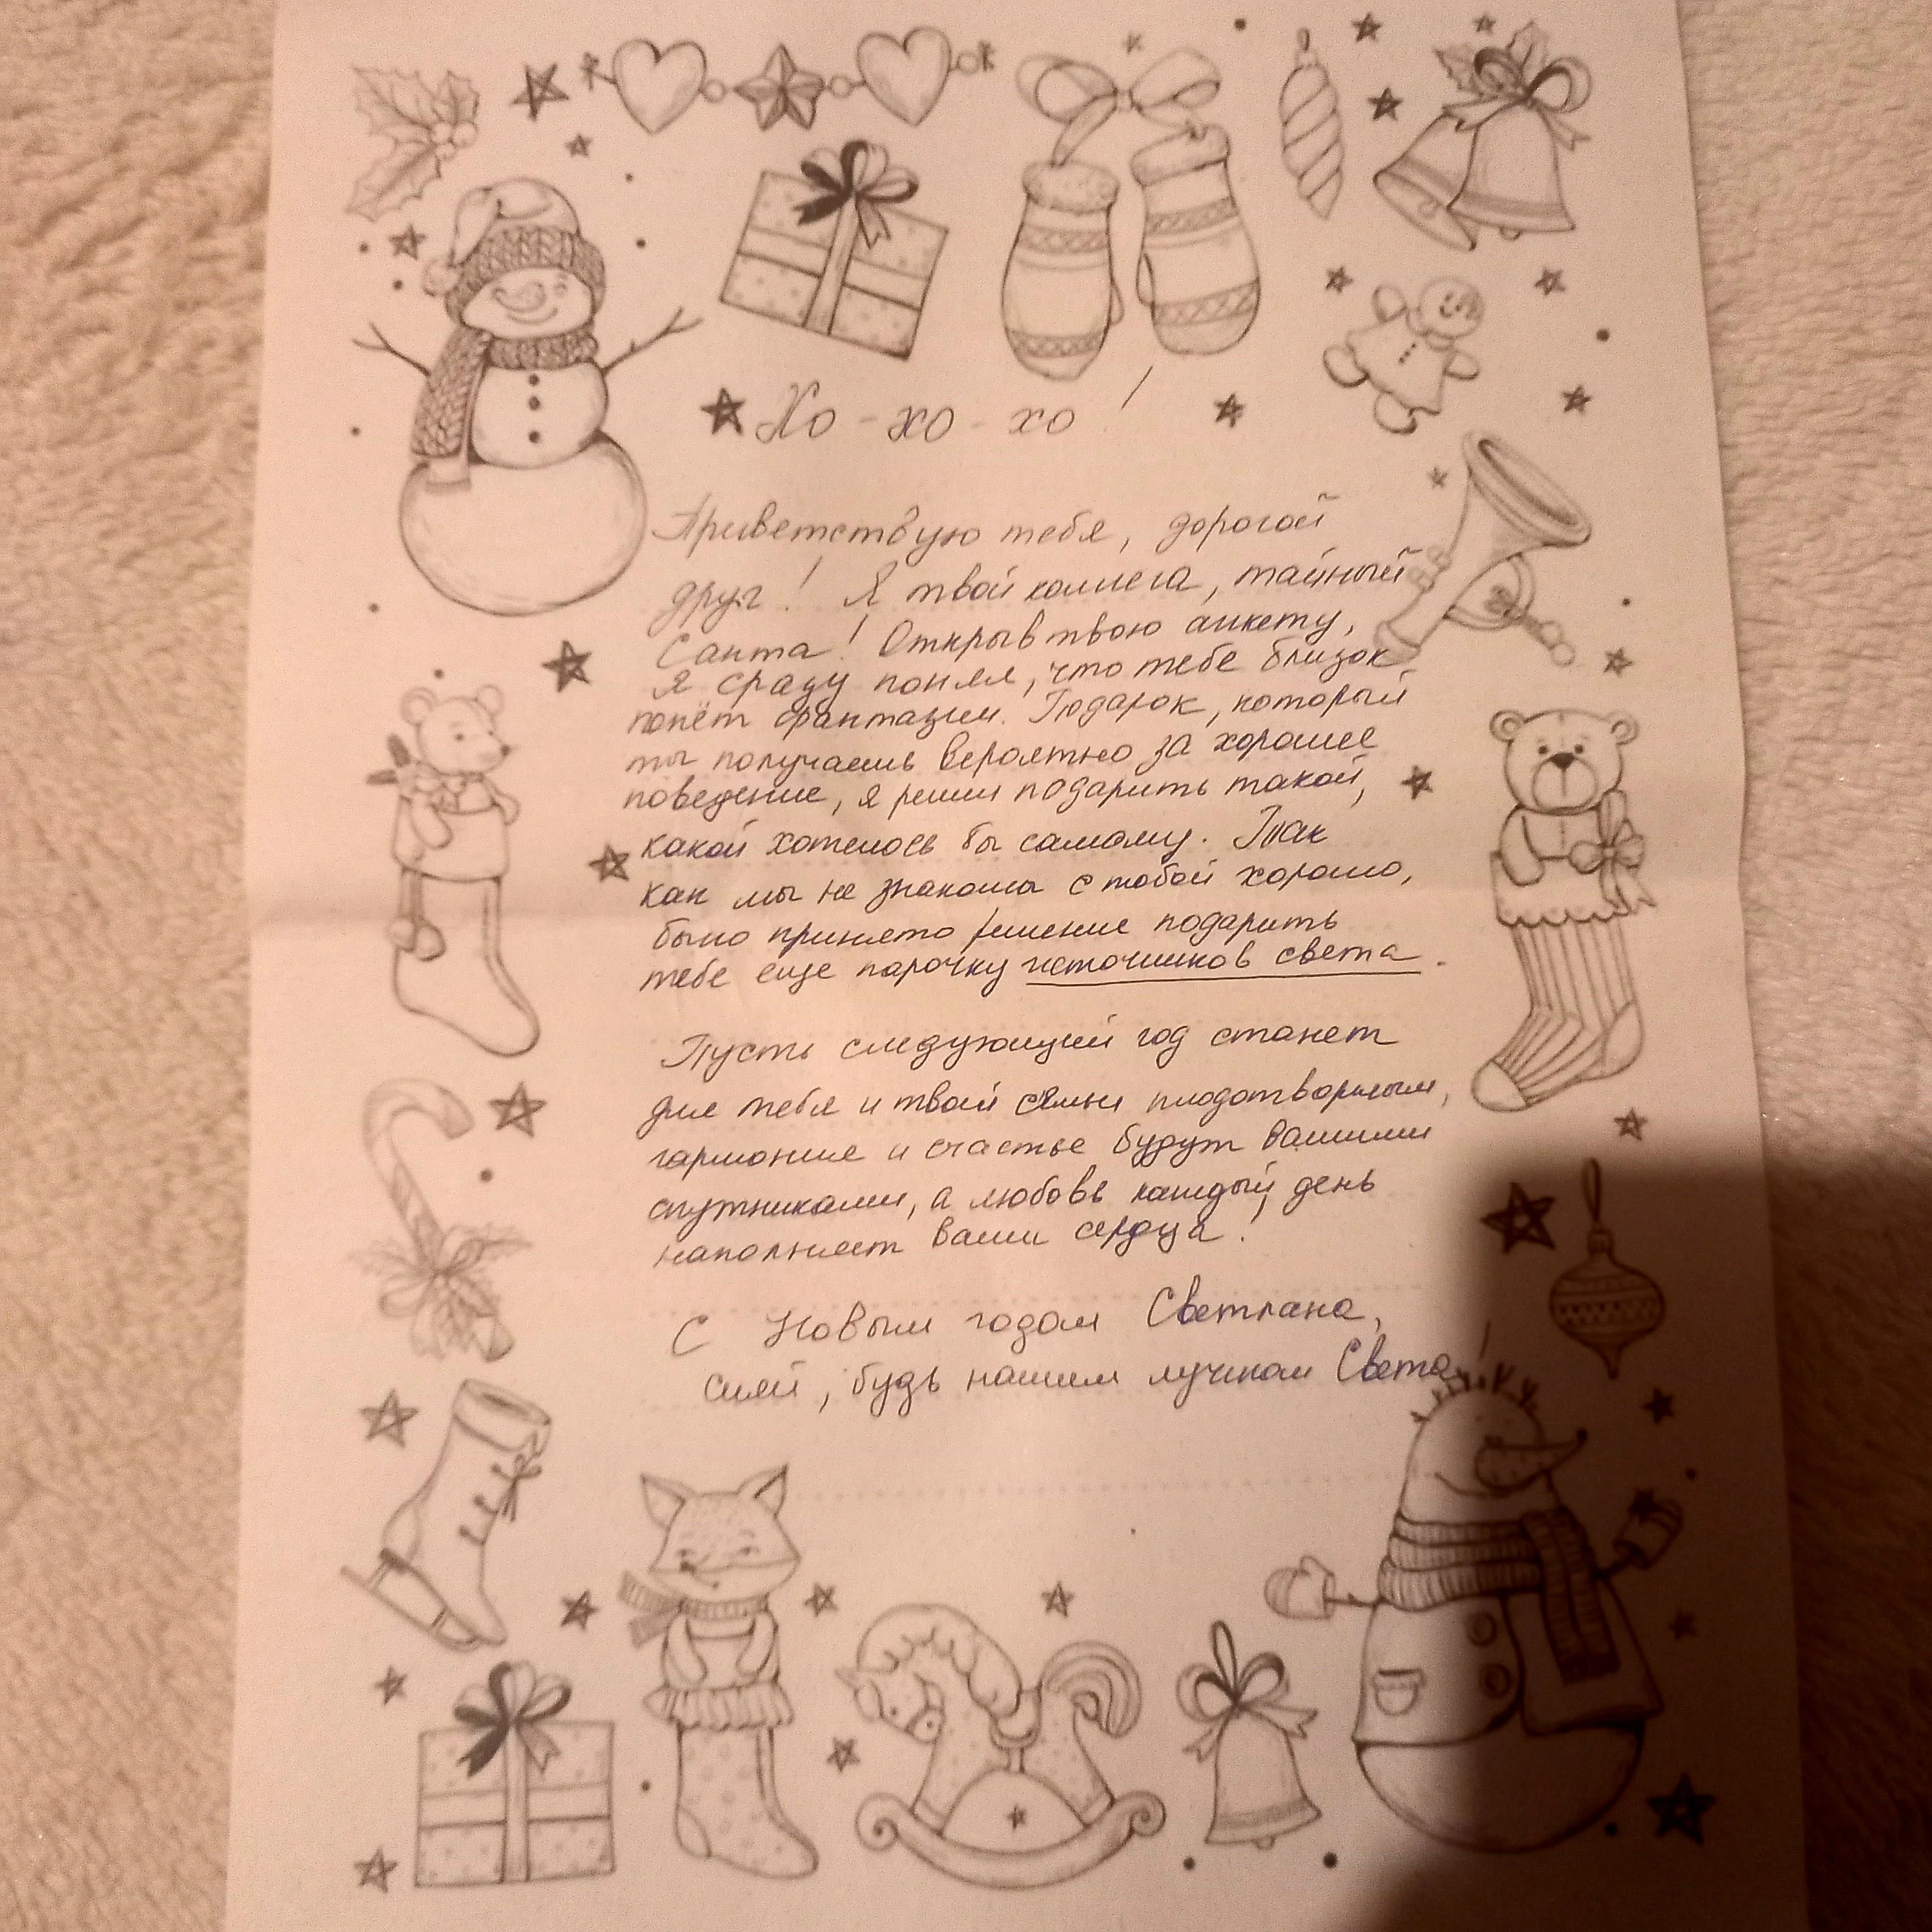 Хо-хо-хо!
Приветствую тебя, дорогой
друг! Я твой коллега, тайный
Санта! Открыв твою анкету,
я сразу понял, что тебе близок
полёт фантазии. Подарок, который
ты получаешь вероятно за хорошее
поведение, я решил подарить такой,
какой хотелось бы самому. Так
как мы не знакомы с тобой хорошо,
было принято решение подарить
тебе еще парочку источников света.
Пусть следующий год станет
для тебя и твоей семьи плодотворным,
гармония и счастье будут вашими
спутниками, а любовь каждый день
наполняет ваши сердца!
С Новым годом Светлана,
сияй, будь нашим лучиком Света!